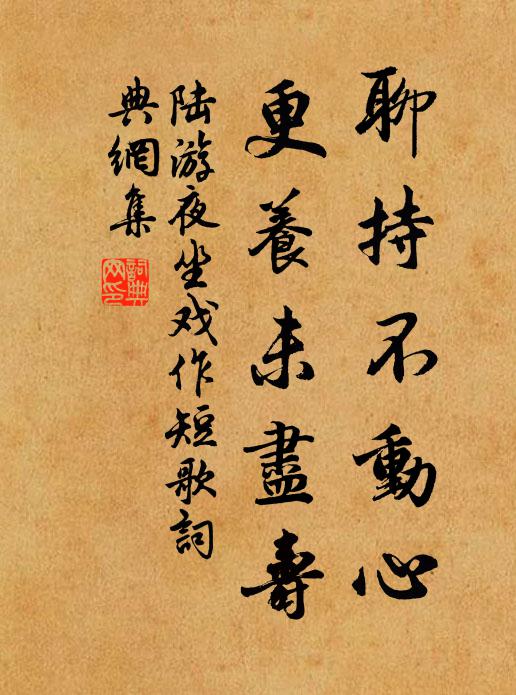 聊持不動心
更養未盡壽
陆游夜坐戏作短歌詞
典網集
詞典
网印